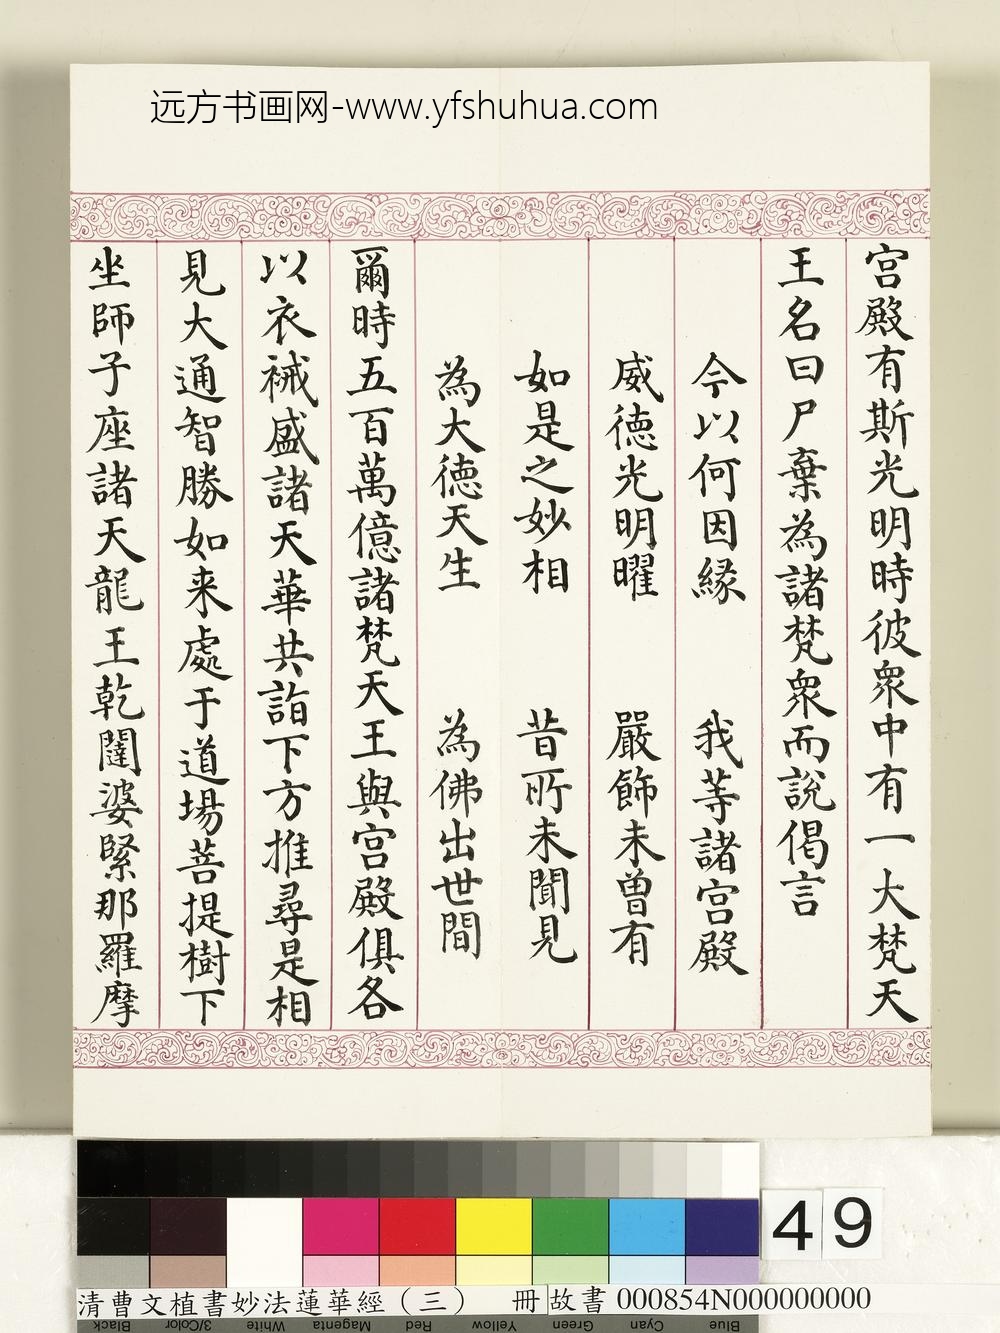 远方书画网-www.yfshuhua.com
宮殿有斯光明時彼眾中有一大梵天
王名曰尸棄為諸梵眾而說偈言
今以何因緣 我等諸宮殿
威德光明曜 嚴飾未曾有
如是之妙相 昔所未聞見
為大德天生 為佛出世間
爾時五百萬億諸梵天王與宮殿俱各
以衣祴盛諸天華共詣下方推尋是相
見大通智勝如来處于道場菩提樹下
坐師子座諸天龍王乾闥婆緊那羅摩
49
清曹文植書妙法蓮華經(三) 冊 故書 000854N000000000
Black 3/Color White Magenta Red Yellow Green Cyan Blue